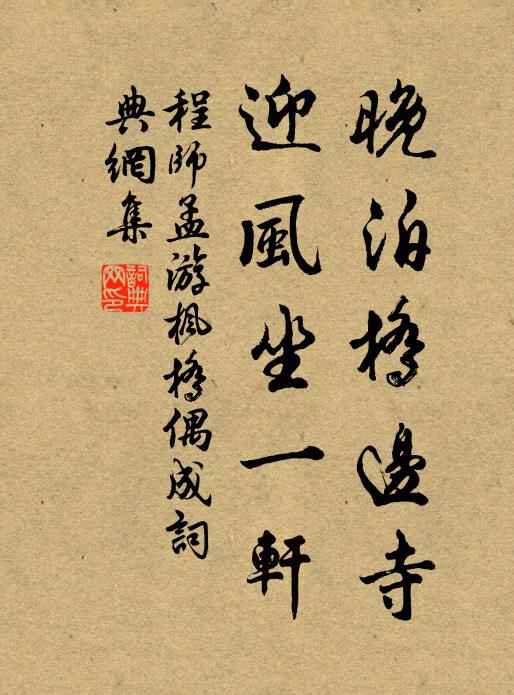 晚泊橋邊寺
迎風坐一軒
程師孟游楓橋偶成詞
典網集
詞典網印